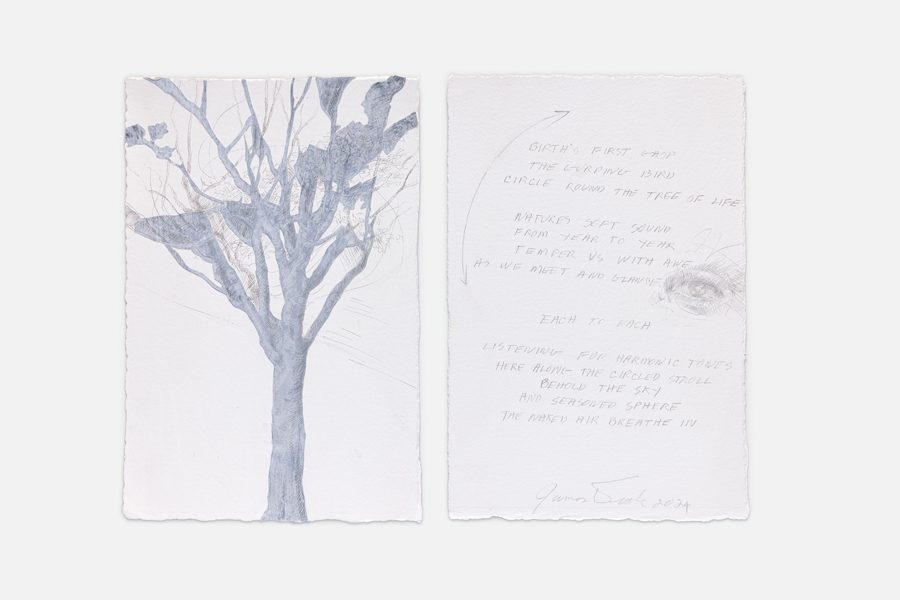 BIRTH'S FIRST GASP
THE CURPING BIRD
CIRCLE ROUND THE TREE OF LIFE
NATURES SOFT SOUND
FROM YEAR TO YEAR
TEMPER US WITH AWE
AS WE MEET AND GLANCE
EACH TO EACH
LISTENING FOR HARMONIC TONES
HERE ALONG THE CIRCLED STROLL
BEHOLD THE SKY
AND SEASONED SPHERE
THE NAKED AIR BREATHE IN
James 2024